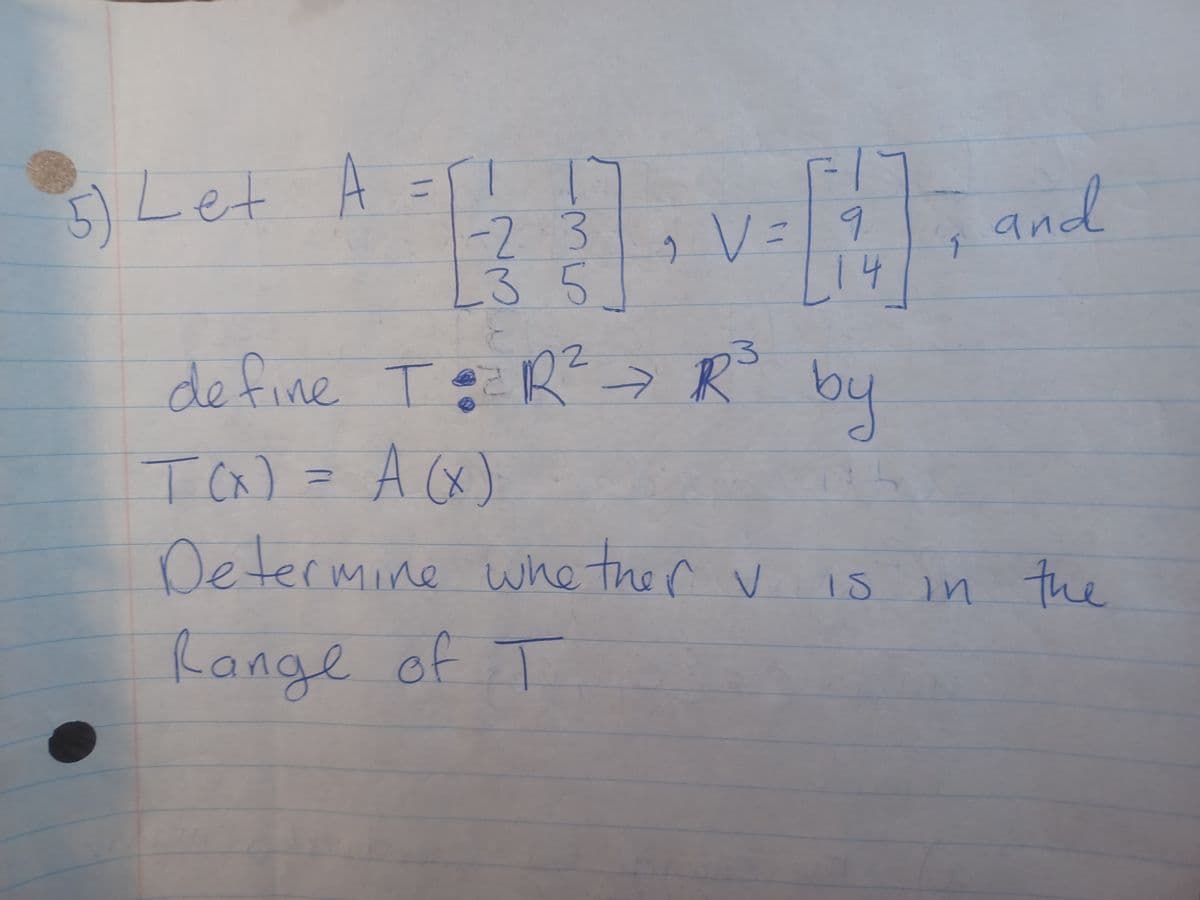 5) Let A = [1 1; -2 3; 3 5], V = [-1; 9; 14], and
define T: R² → R³ by
T(x) = A(x)
Determine whether v is in the
Range of T